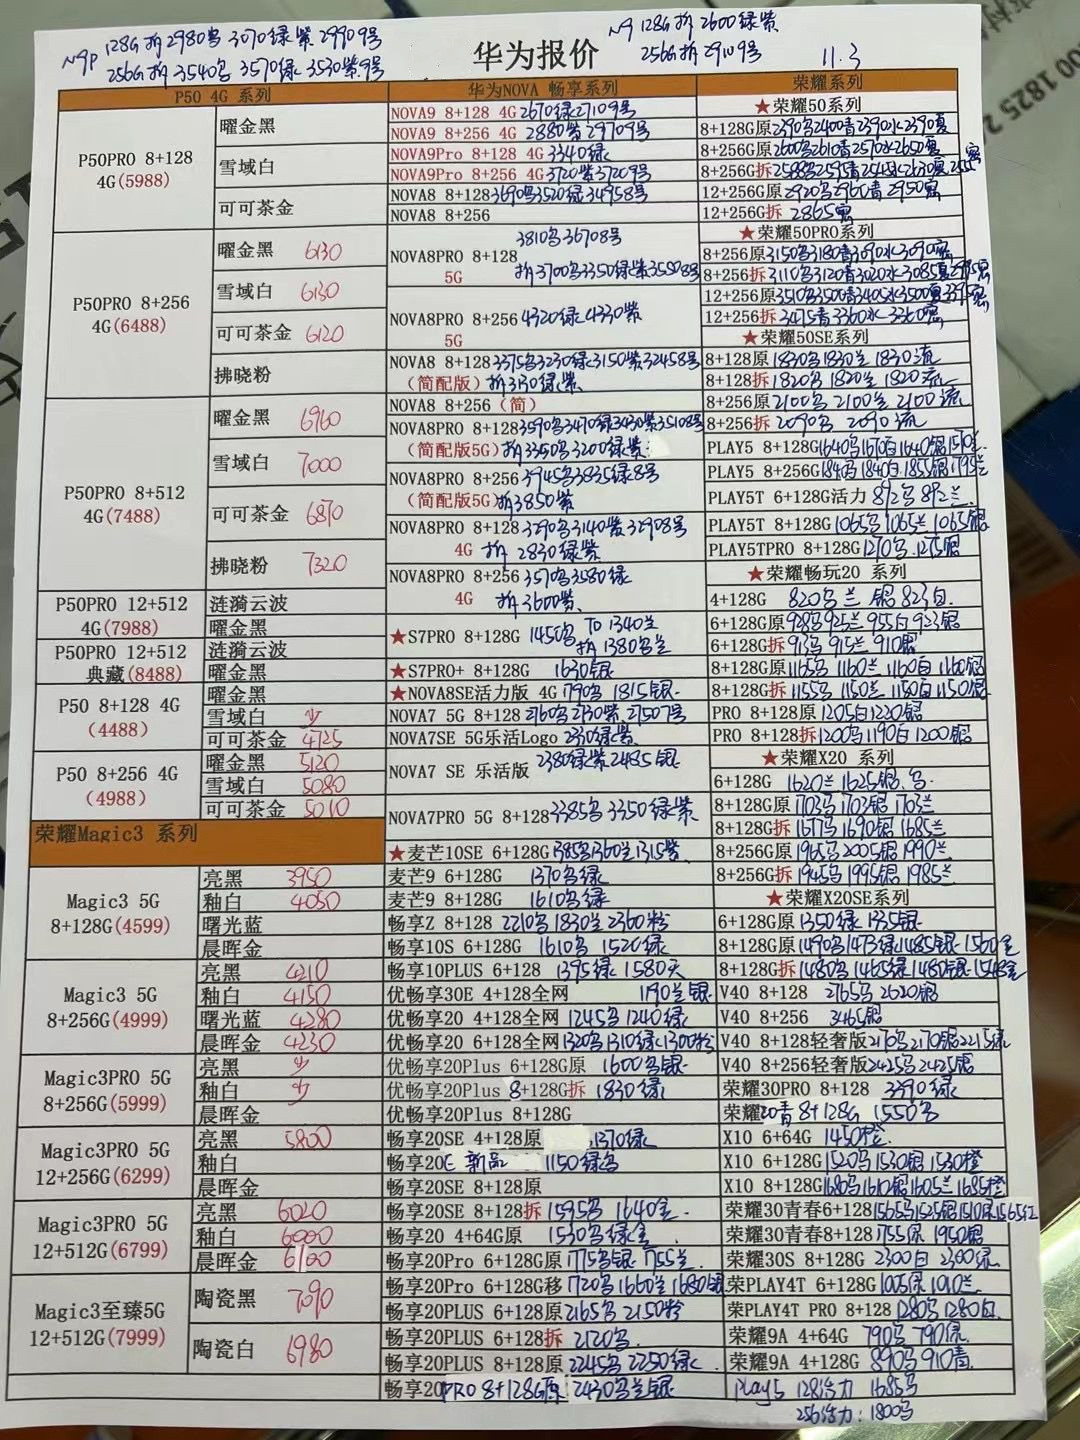 N9P 128G拆2980乌 3070绿紫 2990 9号
256G拆3540乌 3570绿 3530紫.9号
华为报价
N9 128G拆2600绿紫
256G拆2910 9号
11.3
P50 4G 系列
P50PRO 8+128
4G(5988)
曜金黑
雪域白
可可茶金
P50PRO 8+256
4G(6488)
曜金黑 6130
雪域白 6130
可可茶金 6120
拂晓粉
P50PRO 8+512
4G(7488)
曜金黑 6960
雪域白 7000
可可茶金 6870
拂晓粉 7320
P50PRO 12+512
4G(7988)
涟漪云波
曜金黑
P50PRO 12+512
典藏(8488)
涟漪云波
曜金黑
P50 8+128 4G
(4488)
曜金黑
雪域白 少
可可茶金 4725
P50 8+256 4G
(4988)
曜金黑 5120
雪域白 5080
可可茶金 5010
荣耀Magic3 系列
Magic3 5G
8+128G(4599)
亮黑 3950
釉白 4050
曙光蓝
晨晖金
Magic3 5G
8+256G(4999)
亮黑 4210
釉白 4150
曙光蓝 4280
晨晖金 4230
Magic3PRO 5G
8+256G(5999)
亮黑 少
釉白 少
晨晖金
Magic3PRO 5G
12+256G(6299)
亮黑 5800
釉白
晨晖金
Magic3PRO 5G
12+512G(6799)
亮黑 6020
釉白 6000
晨晖金 6100
Magic3至臻5G
12+512G(7999)
陶瓷黑 7090
陶瓷白 6980
华为NOVA 畅享系列
NOVA9 8+128 4G 2670绿2710 9号
NOVA9 8+256 4G 2880紫 2970 9号
NOVA9Pro 8+128 4G 3340绿
NOVA9Pro 8+256 4G 3720紫3720 9号
NOVA8 8+128 3690乌3520绿3495 8号
NOVA8 8+256
3810乌3670 8号
NOVA8PRO 8+128
5G 拆3700乌3350绿紫3550 8号
NOVA8PRO 8+256 4320绿4330紫
5G
NOVA8 8+128 3375乌3230绿3150紫3245 8号
(简配版) 拆3130绿紫
NOVA8 8+256(简)
NOVA8PRO 8+128 3590乌3470绿3430紫3510 8号
(简配版5G) 拆3350乌3200绿紫
NOVA8PRO 8+256 3945乌3835绿8号
(简配版5G) 拆3850紫
NOVA8PRO 8+128 3290乌3140紫3290 8号
4G 拆 2830绿紫
NOVA8PRO 8+256 3570乌3580绿
4G 拆3600紫
★S7PRO 8+128G 1450乌 TO 1340兰
拆 1380乌兰
★S7PRO+ 8+128G 1630银
★NOVA8SE活力版 4G 1790乌 1815银
NOVA7 5G 8+128 2760乌2730紫.2750 7号
NOVA7SE 5G乐活Logo 2370绿紫
NOVA7 SE 乐活版 2380绿紫2485银
NOVA7PRO 5G 8+128 3385乌 3350绿紫
★麦芒10SE 6+128G 1385乌1360兰1315紫
麦芒9 6+128G 1370乌绿
麦芒9 8+128G 1610乌绿
畅享Z 8+128 2210乌 1830兰 2360粉
畅享10S 6+128G 1610乌 1520绿
畅享10PLUS 6+128 1395绿 1580天
优畅享30E 4+128全网 1190兰银
优畅享20 4+128全网 1245乌 1240绿
优畅享20 6+128全网 1320乌1310绿1300粉
优畅享20Plus 6+128G原 1600乌银
优畅享20Plus 8+128G拆 1830绿
优畅享20Plus 8+128G
畅享20SE 4+128原 1370绿
畅享20E 新品 1150绿乌
畅享20SE 8+128原
畅享20SE 8+128拆 1595乌 1640金
畅享20 4+64G原 1530乌绿金
畅享20Pro 6+128G原 1775乌银 1755兰
畅享20Pro 6+128G移 1720乌1660兰1680银
畅享20PLUS 6+128原 2165乌 2150粉
畅享20PLUS 6+128拆 2120乌
畅享20PLUS 8+128原 2245乌 2250绿
畅享20PRO 8+128G原 2430乌兰银
荣耀系列
★荣耀50系列
8+128G原2390乌2400青2390水2390夏
8+256G原2600乌2610青2570水2650夏
8+256G拆
12+256G原2920乌2960青2950密
12+256G拆 2865密
★荣耀50PRO系列
8+256原3150乌3180青3090水3090密
8+256拆3110乌3120青3020水3085夏
12+256原3510乌3500青3405水3500夏
12+256拆3475青3360水 3360密
★荣耀50SE系列
8+128原 1830乌1830兰 1830流
8+128拆 1820乌 1820兰 1820流
8+256原 2100乌 2100兰 2100流
8+256拆 2090乌 2090流
PLAY5 8+128G1640乌1670白1640银1570兰
PLAY5 8+256G1840乌1840白1855银1795兰
PLAY5T 6+128G活力 892乌892兰
PLAY5T 8+128G 1065乌1065兰1065银
PLAY5TPRO 8+128G1270乌.1275银
★荣耀畅玩20 系列
4+128G 820乌兰 银823白
6+128G原928乌925兰955白923银
6+128G拆913乌915兰910银
8+128G原1165乌1160兰1160白1160银
8+128G拆1155乌1150兰1150白1150银
PRO 8+128原 1205白1220银
PRO 8+128拆1200乌1190白1200银
★荣耀X20 系列
6+128G 1620兰1625银.乌
8+128G原1703乌1703银1703兰
8+128G拆1677乌1690银1685兰
8+256G原 1965乌2005银1990兰
8+256G拆 1945乌1995银1985兰
★荣耀X20SE系列
6+128G原1350绿1335银
8+128G原1490乌1473绿1485银1560金
8+128G拆1480乌1465绿1480银1548金
V40 8+128 2765乌2620银
V40 8+256 3465银
V40 8+128轻奢版2170乌2170银2215绿
V40 8+256轻奢版2425乌2425银
荣耀30PRO 8+128 3390绿
荣耀20青8+128G 1550乌
X10 6+64G 1450橙
X10 6+128G1520乌1530银1530橙
X10 8+128G1680乌1610银1605兰1685橙
荣耀30青春6+128 1565乌1525银1510绿1565红
荣耀30青春8+128 1755绿 1950银
荣耀30S 8+128G 2300白 2300绿
荣PLAY4T 6+128G 1005绿1010兰
荣PLAY4T PRO 8+128 1280乌1280白
荣耀9A 4+64G 790乌790绿
荣耀9A 4+128G 890乌910青
play5 128活力 1685乌
256活力:1800乌